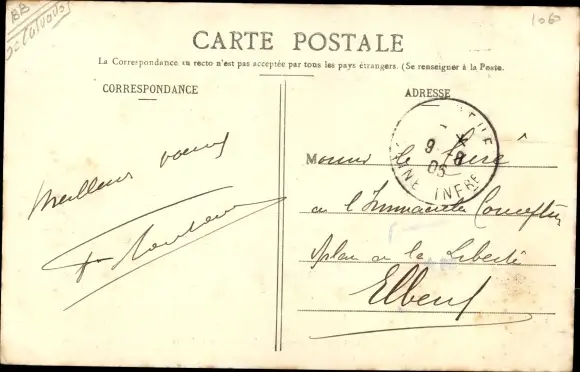 BB
Calvados
1060
CARTE POSTALE
La Correspondance au recto n'est pas acceptée par tous les pays étrangers. (Se renseigner à la Poste.
CORRESPONDANCE
ADRESSE
Meilleurs vœux
Monsieur le Curé
de l'Immaculée Conception
place de la Liberté
Elbeuf
INE INFRE
9
05